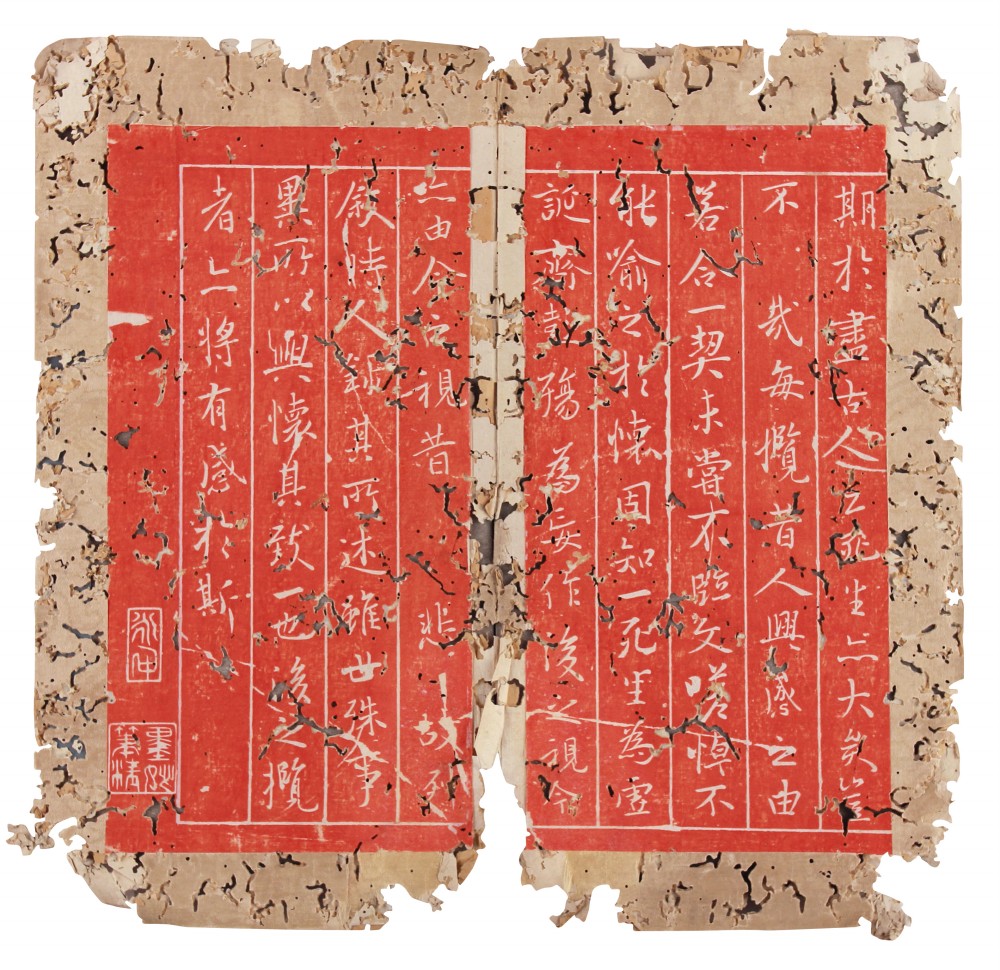 期於盡古人云死生亦大矣豈
不 哉每攬昔人興感之由
若合一契未嘗不臨文嗟悼不
能喻之於懷固知一死生為虛
誕齊彭殤為妄作後之視今
亦由今之視昔 悲 故列
敘時人錄其所述雖世殊事
異所以興懷其致一也後之攬
者亦將有感於斯
永仲
墨妙筆精